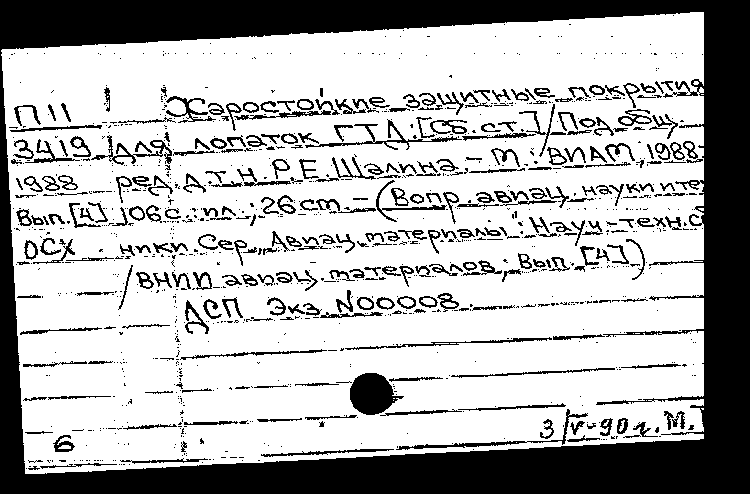 П 11 Жаростойкие защитные покрытия
3419 для лопаток ГТД: [Сб. ст.] / Под общ.
1988 ред. д.т.н. Р.Е. Шалина. - М.: ВИАМ, 1988-
Вып. [4] 106 с.: ил.; 26 cm. - (Вопр. авиац. науки и тех
ОСХ ники. Сер. „Авиац. материалы": Науч.-техн. сб
/ ВНИИ авиац. материалов; Вып. [4])
ДСП Экз. N00008.
3/V-90 г. М.
6